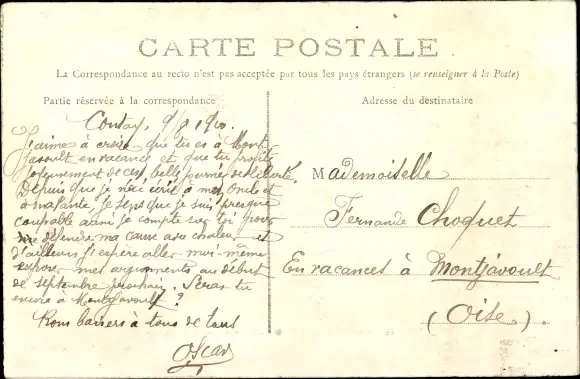 CARTE POSTALE
La Correspondance au recto n'est pas acceptée par tous les pays étrangers (se renseigner à la Poste)
Partie réservée à la correspondance
Adresse du destinataire
Contay, 9/8/
J'aime à croire que tu es à Mont-
javoult en vacance et que tu profite
joyeusement de ces belles journées de liberté.
Depuis que je n'ai écrit à mon oncle et
à ma tante, je sens que je suis presque
coupable aussi je compte sur toi pour
défendre ma cause avec chaleur et
d'ailleurs j'espère aller moi-même
exposer mes arguments au début
de septembre prochain. Seras tu
encore à Montjavoult ?
Bons baisers à tous de tous
Oscar
Mademoiselle
Fernande Choquet
En vacances à Montjavoult
(Oise)